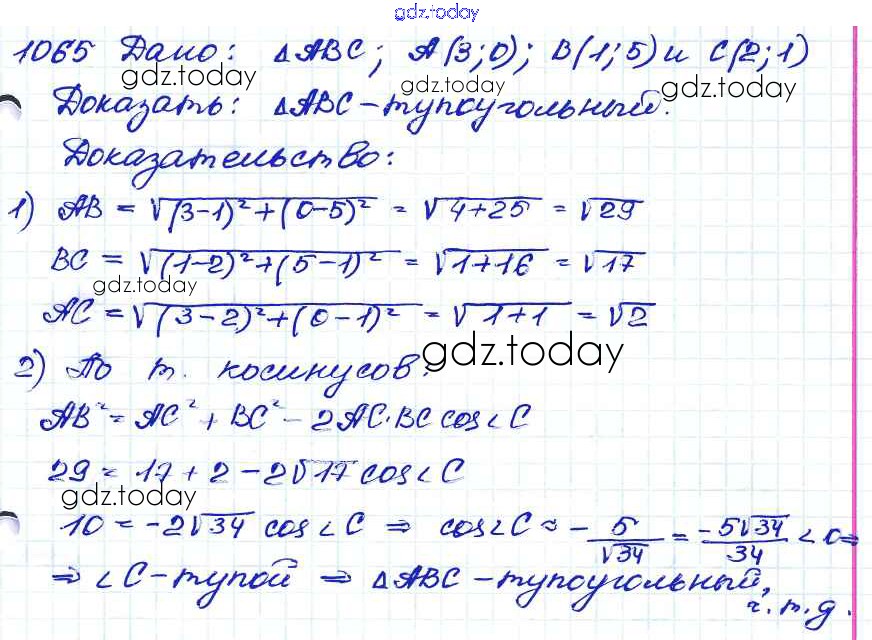 gdz.today
1065 Дано: △ABC; A(3;0); B(1;5) и C(2;1)
gdz.today gdz.today gdz.today
Доказать: △ABC – тупоугольный.
Доказательство:
1) AB = √((3-1)²+(0-5)²) = √(4+25) = √29
BC = √((1-2)²+(5-1)²) = √(1+16) = √17
gdz.today
AC = √((3-2)²+(0-1)²) = √(1+1) = √2
gdz.today
2) По т. косинусов:
AB² = AC² + BC² - 2AC·BC cos∠C
29 = 17 + 2 - 2√17 cos∠C
gdz.today
10 = -2√34 cos∠C ⇒ cos∠C = -5/√34 = -5√34/34 < 0 ⇒
⇒ ∠C – тупой ⇒ △ABC – тупоугольный,
ч.т.д.